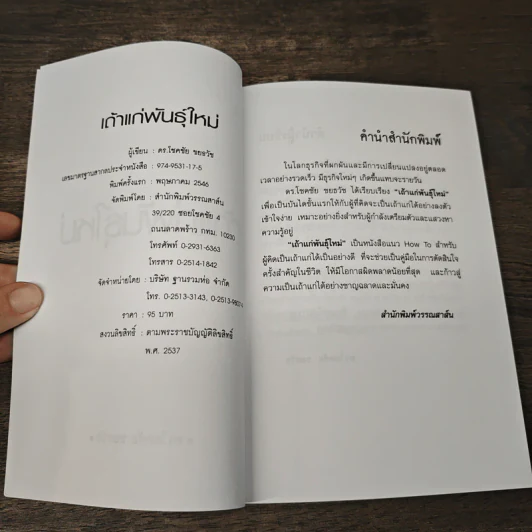 เถ้าแก่พันธุ์ใหม่
ผู้เขียน : ดร.โชคชัย ชยธวัช
เลขมาตรฐานสากลประจำหนังสือ : 974-9531-17-5
พิมพ์ครั้งแรก : พฤษภาคม 2546
จัดพิมพ์โดย : สำนักพิมพ์วรรณสาส์น
39/220 ซอยโชคชัย 4
ถนนลาดพร้าว กทม. 10230
โทรศัพท์ 0-2931-6363
โทรสาร 0-2514-1842
จัดจำหน่ายโดย : บริษัท ฐานรวมห่อ จำกัด
โทร. 0-2513-3143,
ราคา : 95 บาท
สงวนลิขสิทธิ์ : ตามพระราชบัญญัติลิขสิทธิ์
พ.ศ. 2537
คำนำสำนักพิมพ์
ในโลกธุรกิจที่ผกผันและมีการเปลี่ยนแปลงอยู่ตลอด
เวลาอย่างรวดเร็ว มีธุรกิจใหม่ๆ เกิดขึ้นแทบจะรายวัน
ดร.โชคชัย ชยธวัช ได้เรียบเรียง "เถ้าแก่พันธุ์ใหม่"
เพื่อเป็นบันไดขั้นแรกให้กับผู้ที่คิดจะเป็นเถ้าแก่ได้อย่างลงตัว
เข้าใจง่าย เหมาะอย่างยิ่งสำหรับผู้กำลังเตรียมตัวและแสวงหา
ความรู้อยู่
"เถ้าแก่พันธุ์ใหม่" เป็นหนังสือแนว How To สำหรับ
ผู้คิดเป็นเถ้าแก่ได้เป็นอย่างดี ที่จะช่วยเป็นคู่มือในการตัดสินใจ
ครั้งสำคัญในชีวิต ให้มีโอกาสผิดพลาดน้อยที่สุด และก้าวสู่
ความเป็นเถ้าแก่ได้อย่างชาญฉลาดและมั่นคง
สำนักพิมพ์วรรณสาส์น